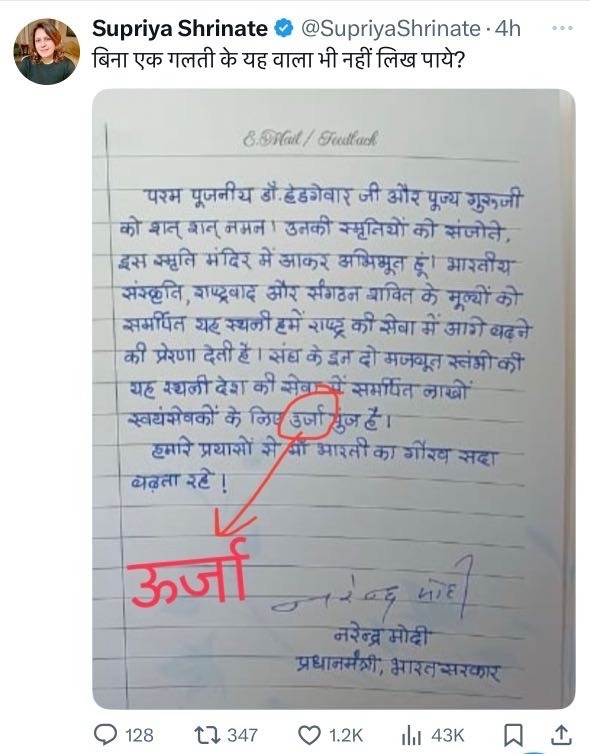 Supriya Shrinate @SupriyaShrinate · 4h
बिना एक गलती के यह वाला भी नहीं लिख पाये?
E.Mail / Feedback
परम पूजनीय डॉ. हेडगेवार जी और पूज्य गुरुजी
को शत् शत् नमन। उनकी स्मृतियों को संजोते,
इस स्मृति मंदिर में आकर अभिभूत हूं। भारतीय
संस्कृति, राष्ट्रवाद और संगठन शक्ति के मूल्यों को
समर्पित यह स्थली हमें राष्ट्र की सेवा में आगे बढ़ने
की प्रेरणा देती है। संघ के इन दो मजबूत स्तंभों की
यह स्थली देश की सेवा में समर्पित लाखों
स्वयंसेवकों के लिए उर्जा पुंज है।
हमारे प्रयासों से माँ भारती का गौरव सदा
बढ़ता रहे!
ऊर्जा
नरेन्द्र मोदी
नरेन्द्र मोदी
प्रधानमंत्री, भारत सरकार
128 347 1.2K 43K